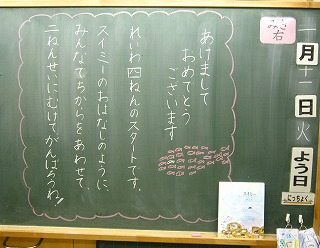 一月十一日火よう日
にっちょく
みぎ
右
あけまして
おめでとう
ございます
れいわ四ねんのスタートです。
スイミーのおはなしのように、
みんなでちからをあわせて、
二ねんせいにむけてがんばろうね!
スイミー